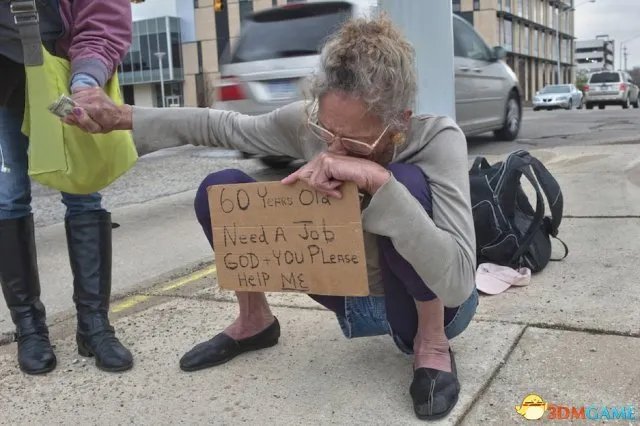 60 YEARS Old
NEED A JOB
GOD + YOU PLEASE
HELP ME
3DMGAME